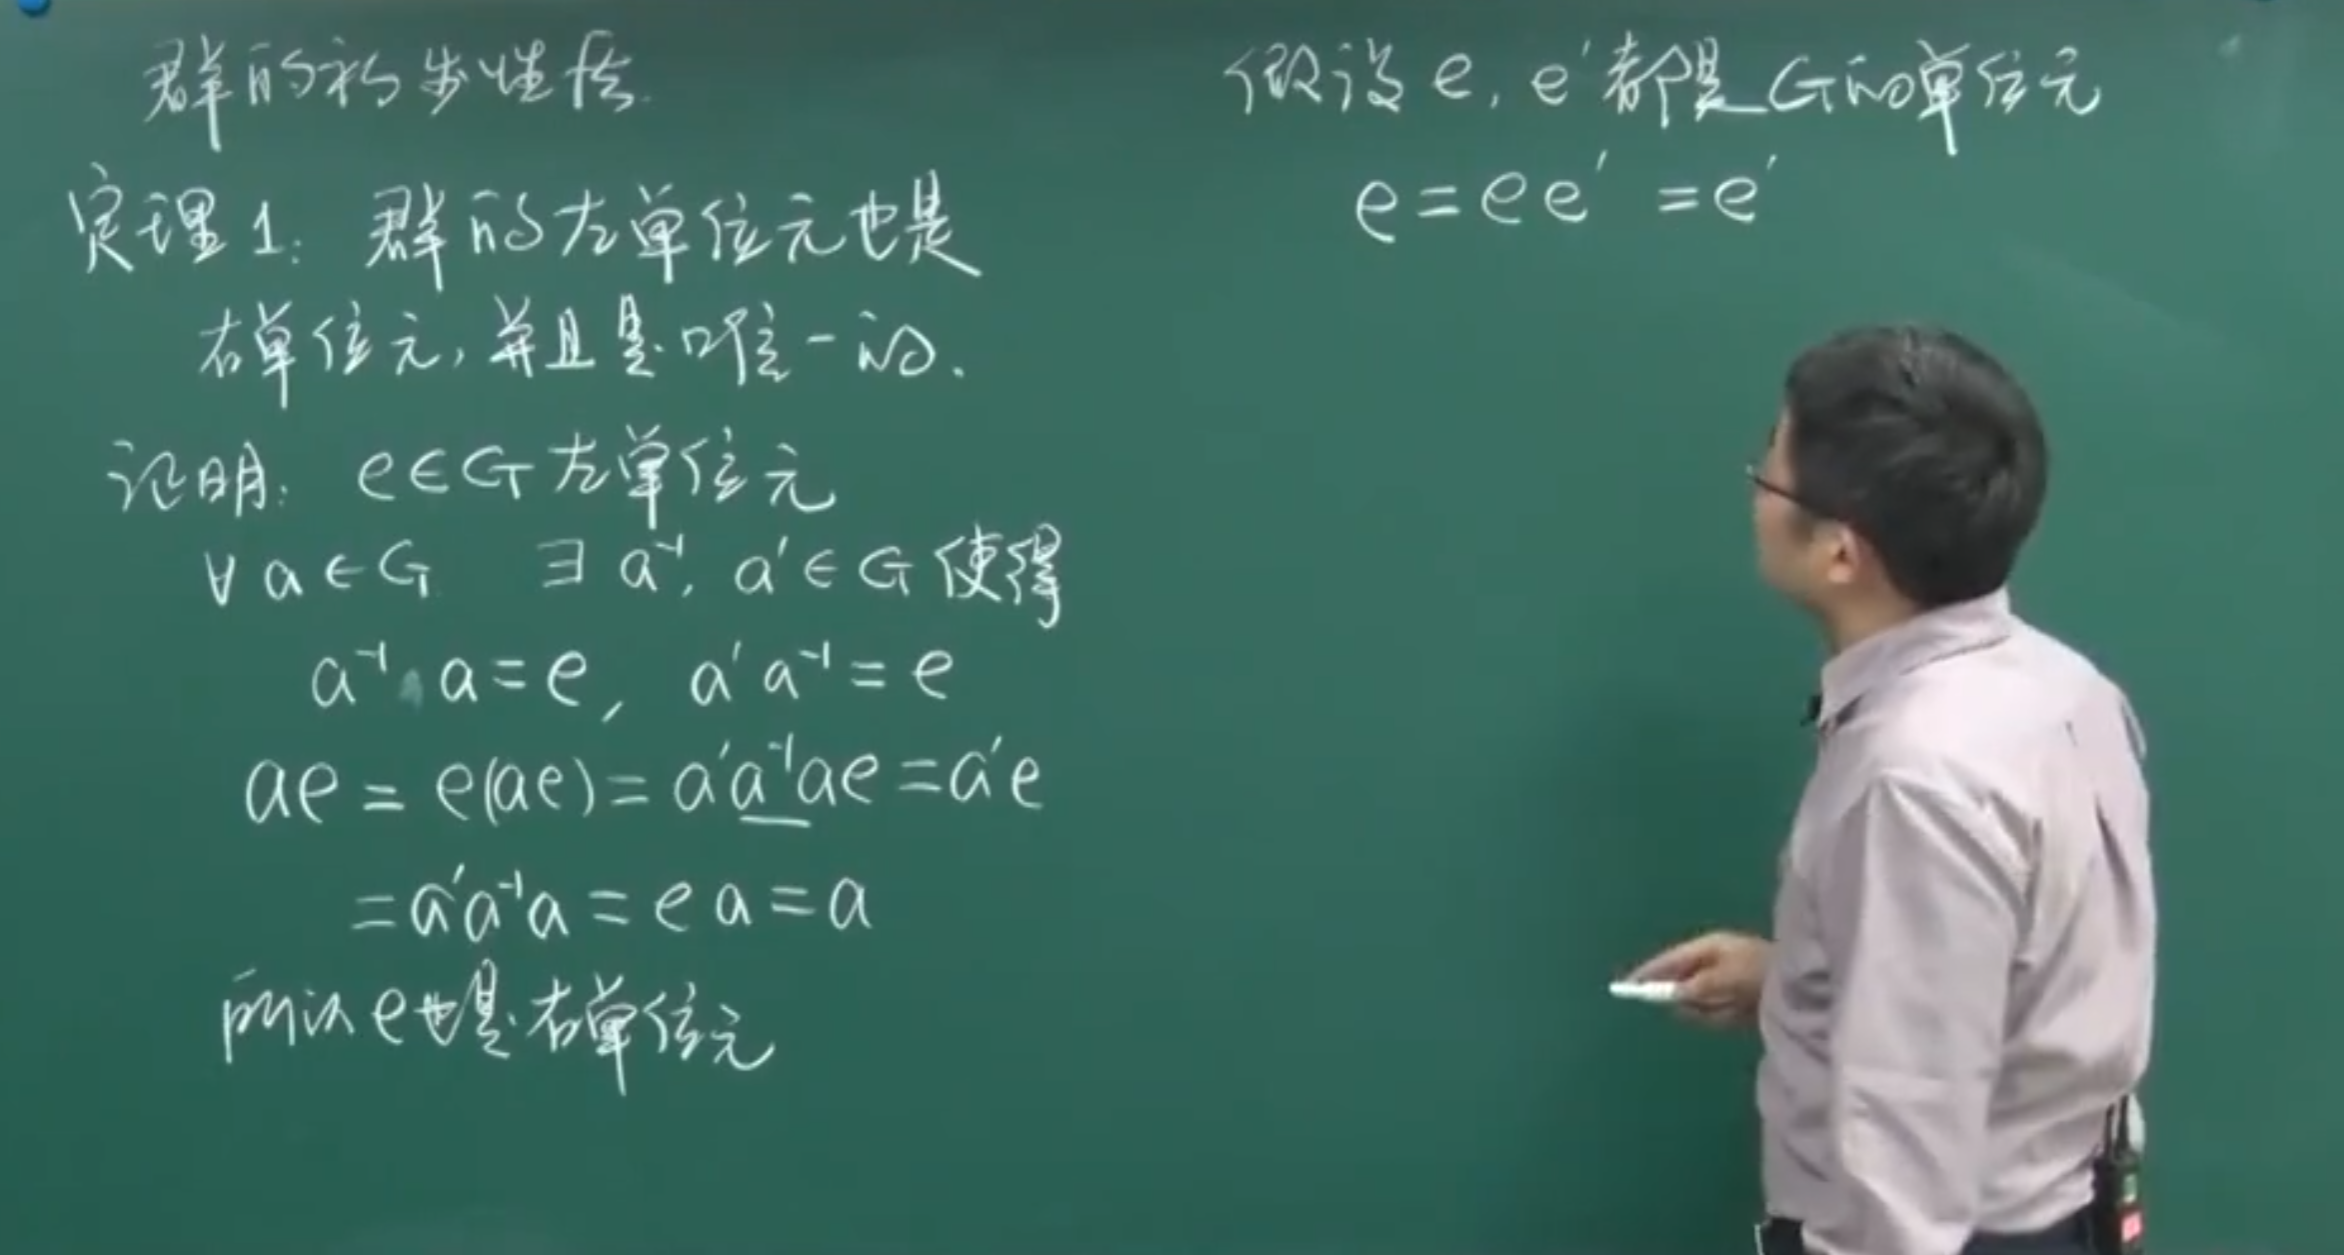 群的初步性质
定理1: 群的左单位元也是
右单位元, 并且是唯一的.
证明: e∈G 左单位元
∀a∈G ∃a⁻¹, a′∈G 使得
a⁻¹a=e, a′a⁻¹=e
ae=e(ae)=a′a⁻¹ae=a′e
=a′a⁻¹a=ea=a
所以e也是右单位元
假设e, e′都是G的单位元
e=ee′=e′